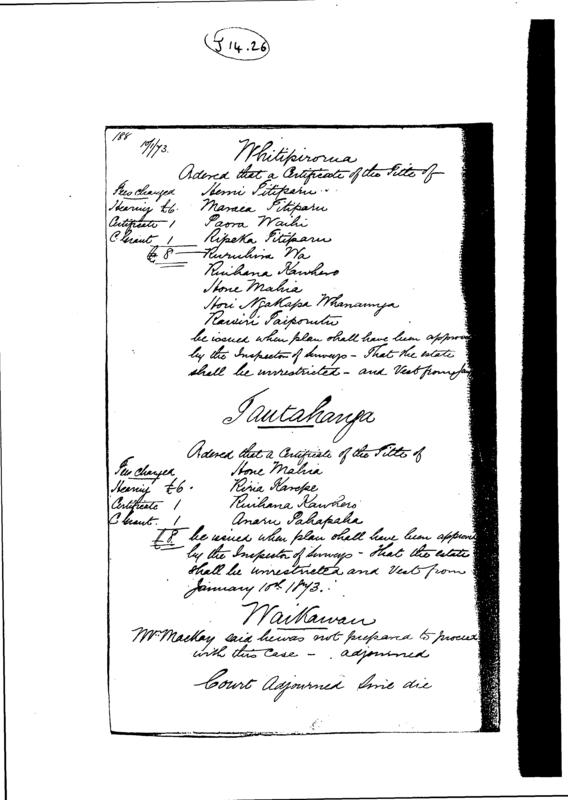 J 14.26
188
10/1/73.
Whitipirorua
Ordered that a Certificate of the Title of
Fees charged Hemi Titiparu
Hearing £6. Maraea Titiparu
Certificate 1 Paora Waihi
C Grant. 1 Ripeka Titiparu
£8 Kuruhira Wa
Ruihana Kawhero
Hone Mahia
Hori Ngakapa Whanaunga
Raisiri Taiporutu
be issued when plan shall have been approv
by the Inspector of Surveys - That the estate
shall be unrestricted - and Vest from Jan
Tautahanga
Ordered that a Certificate of the Title of
Fees charged Hone Mahia
Hearing £6. Riria Karepe
Certificate 1 Ruihana Kawhero
C Grant. 1 Anaru Pahapaha
£8 be issued when plan shall have been approve
by the Inspector of Surveys - that the estate
shall be unrestricted and Vest from
January 10th 1873.
Waikawau
Mr. Mackay said he was not prepared to proceed
with this case - adjourned
Court Adjourned Sine die